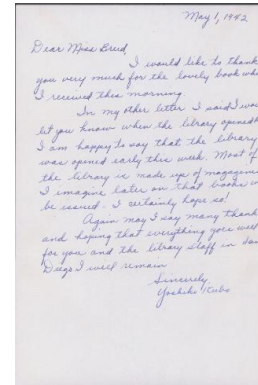 May 1, 1942
Dear Miss Breed,
I would like to thank
you very much for the lovely book
I received this morning.
In my other letter I said I
let you know when the library opened
I am happy to say that the library
was opened early this week. Most of
the library is made up of magazines
I imagine later on that books
be issued. I certainly hope so!
Again may I say many thank
and hoping that everything goes well
for you and the library staff in San
Diego I will remain
Sincerely
Yoshiko Kubo